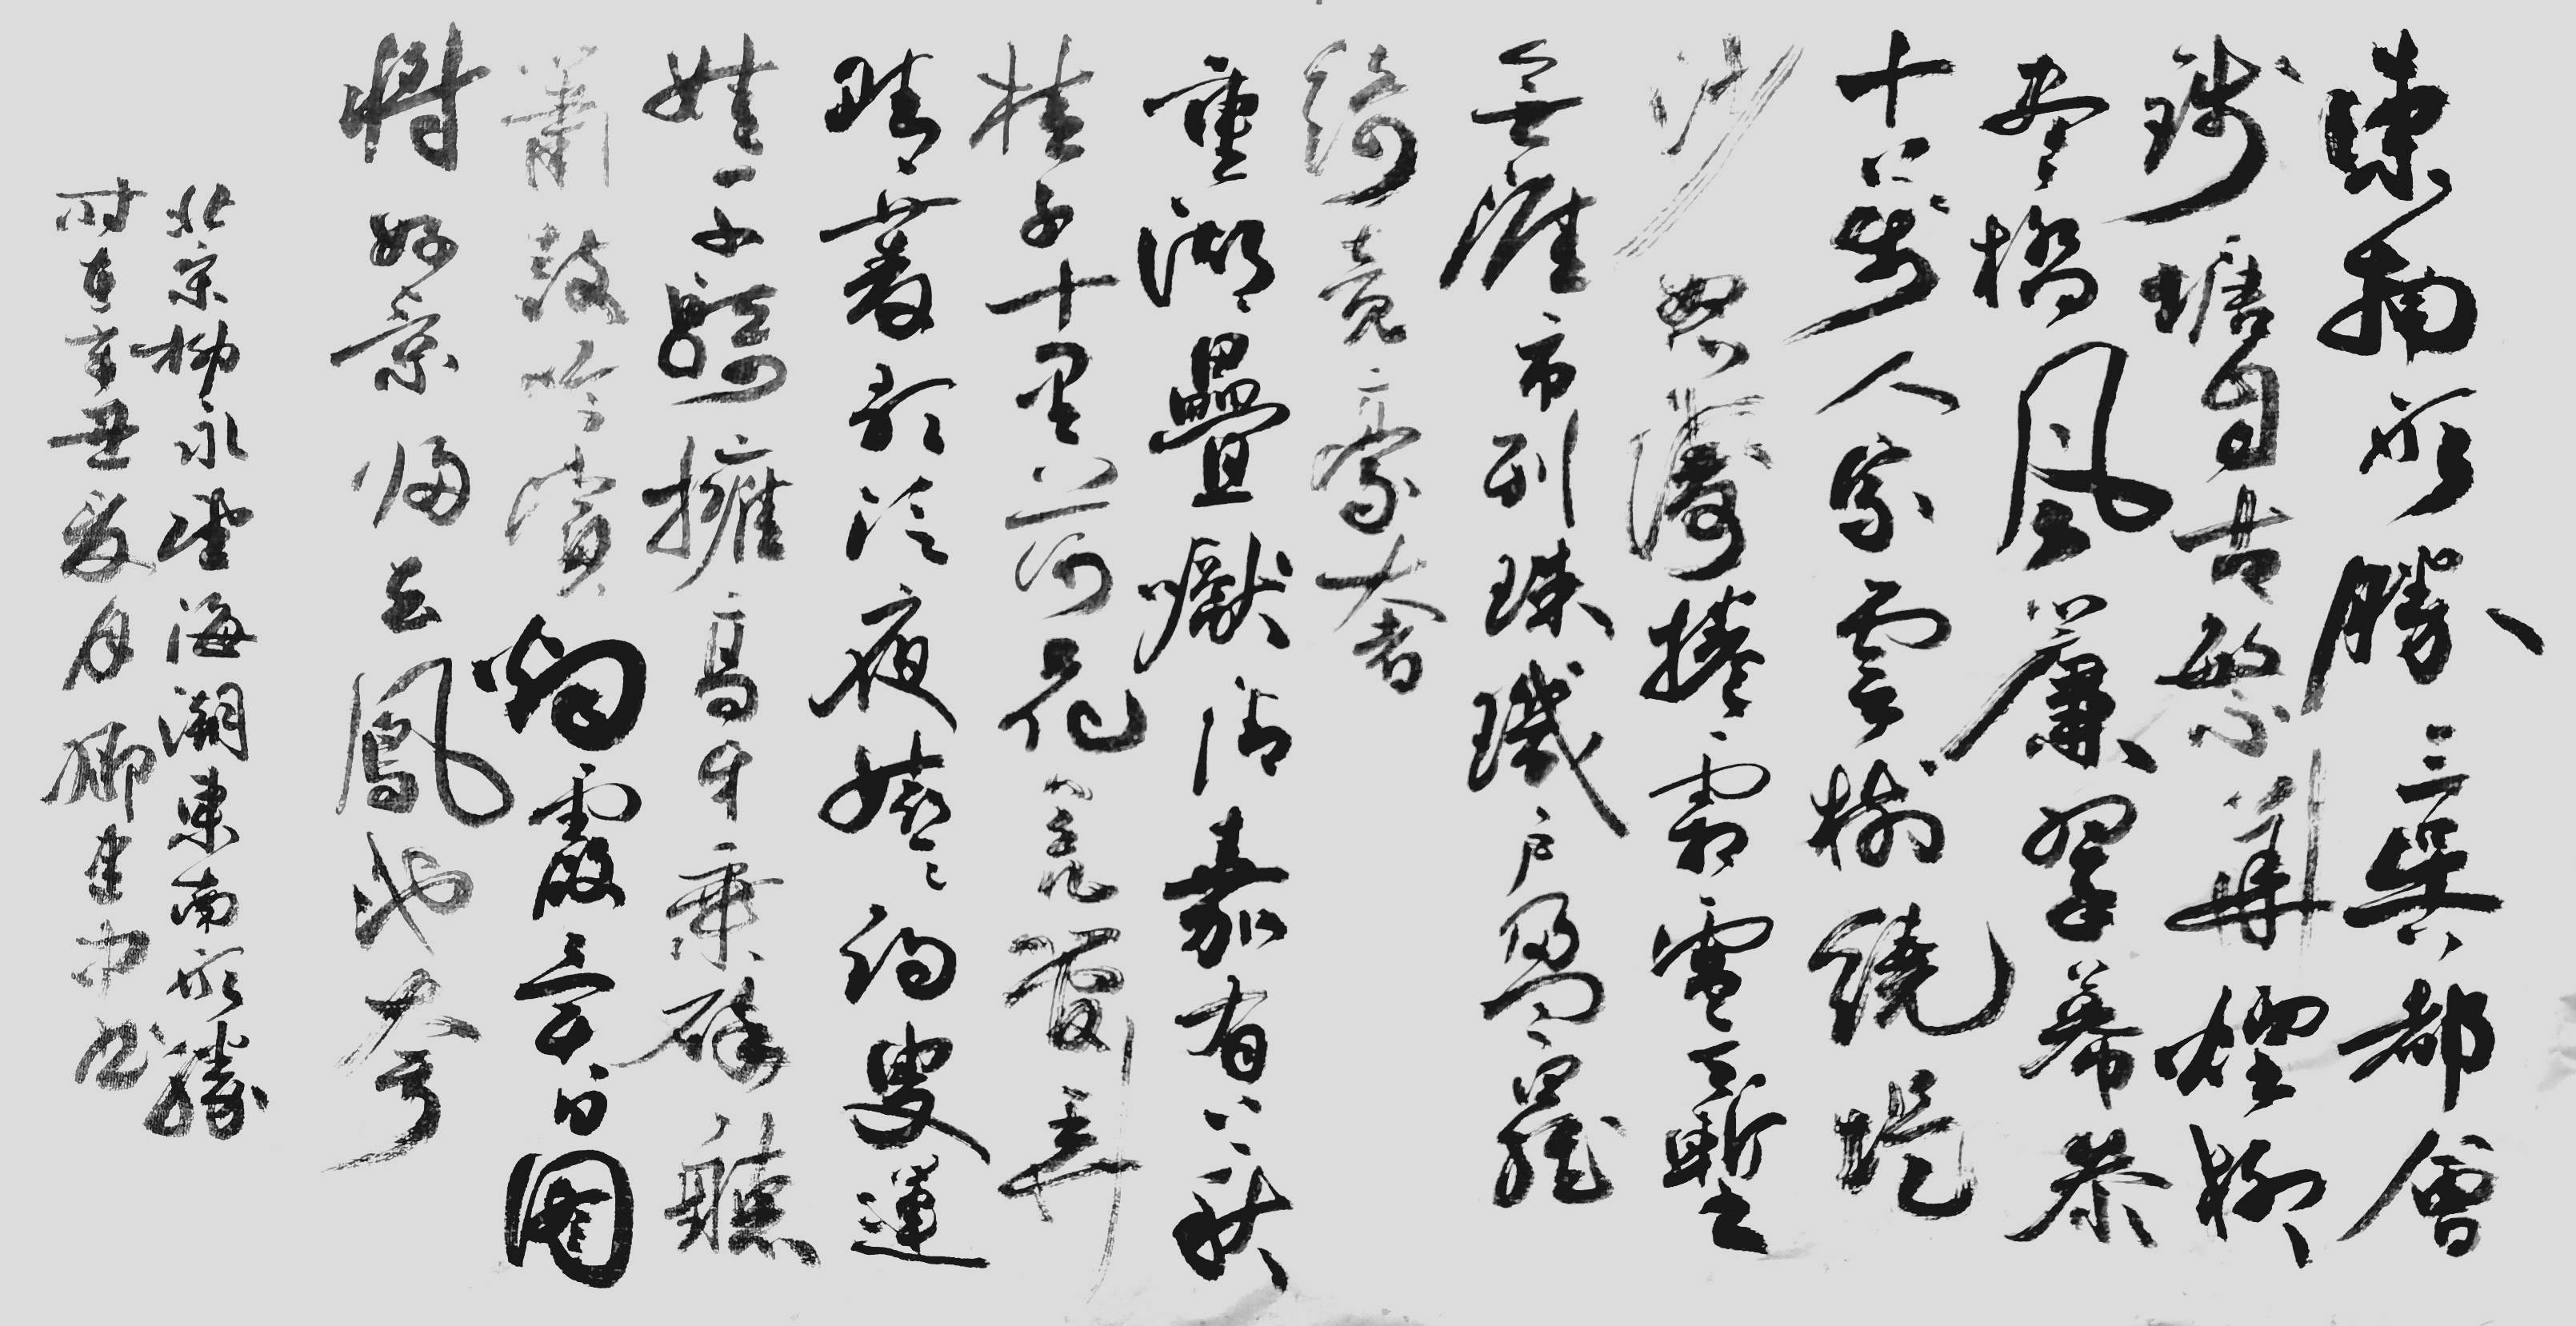 東南形勝三吳都會
錢塘自古繁華煙柳
畫橋風簾翠幕參
十萬人家雲樹繞堤
沙怒濤捲霜雪天塹
無涯市列珠璣戶盈羅
綺競豪奢
重湖疊巘清嘉有三秋
桂子十里荷花羌管弄
晴菱歌泛夜嬉〻釣叟蓮
娃千騎擁高牙乘醉聽
簫鼓吟賞烟霞異日圖
將好景歸去鳳池夸
北宋柳永望海潮東南形勝
時在辛丑夏月建中書